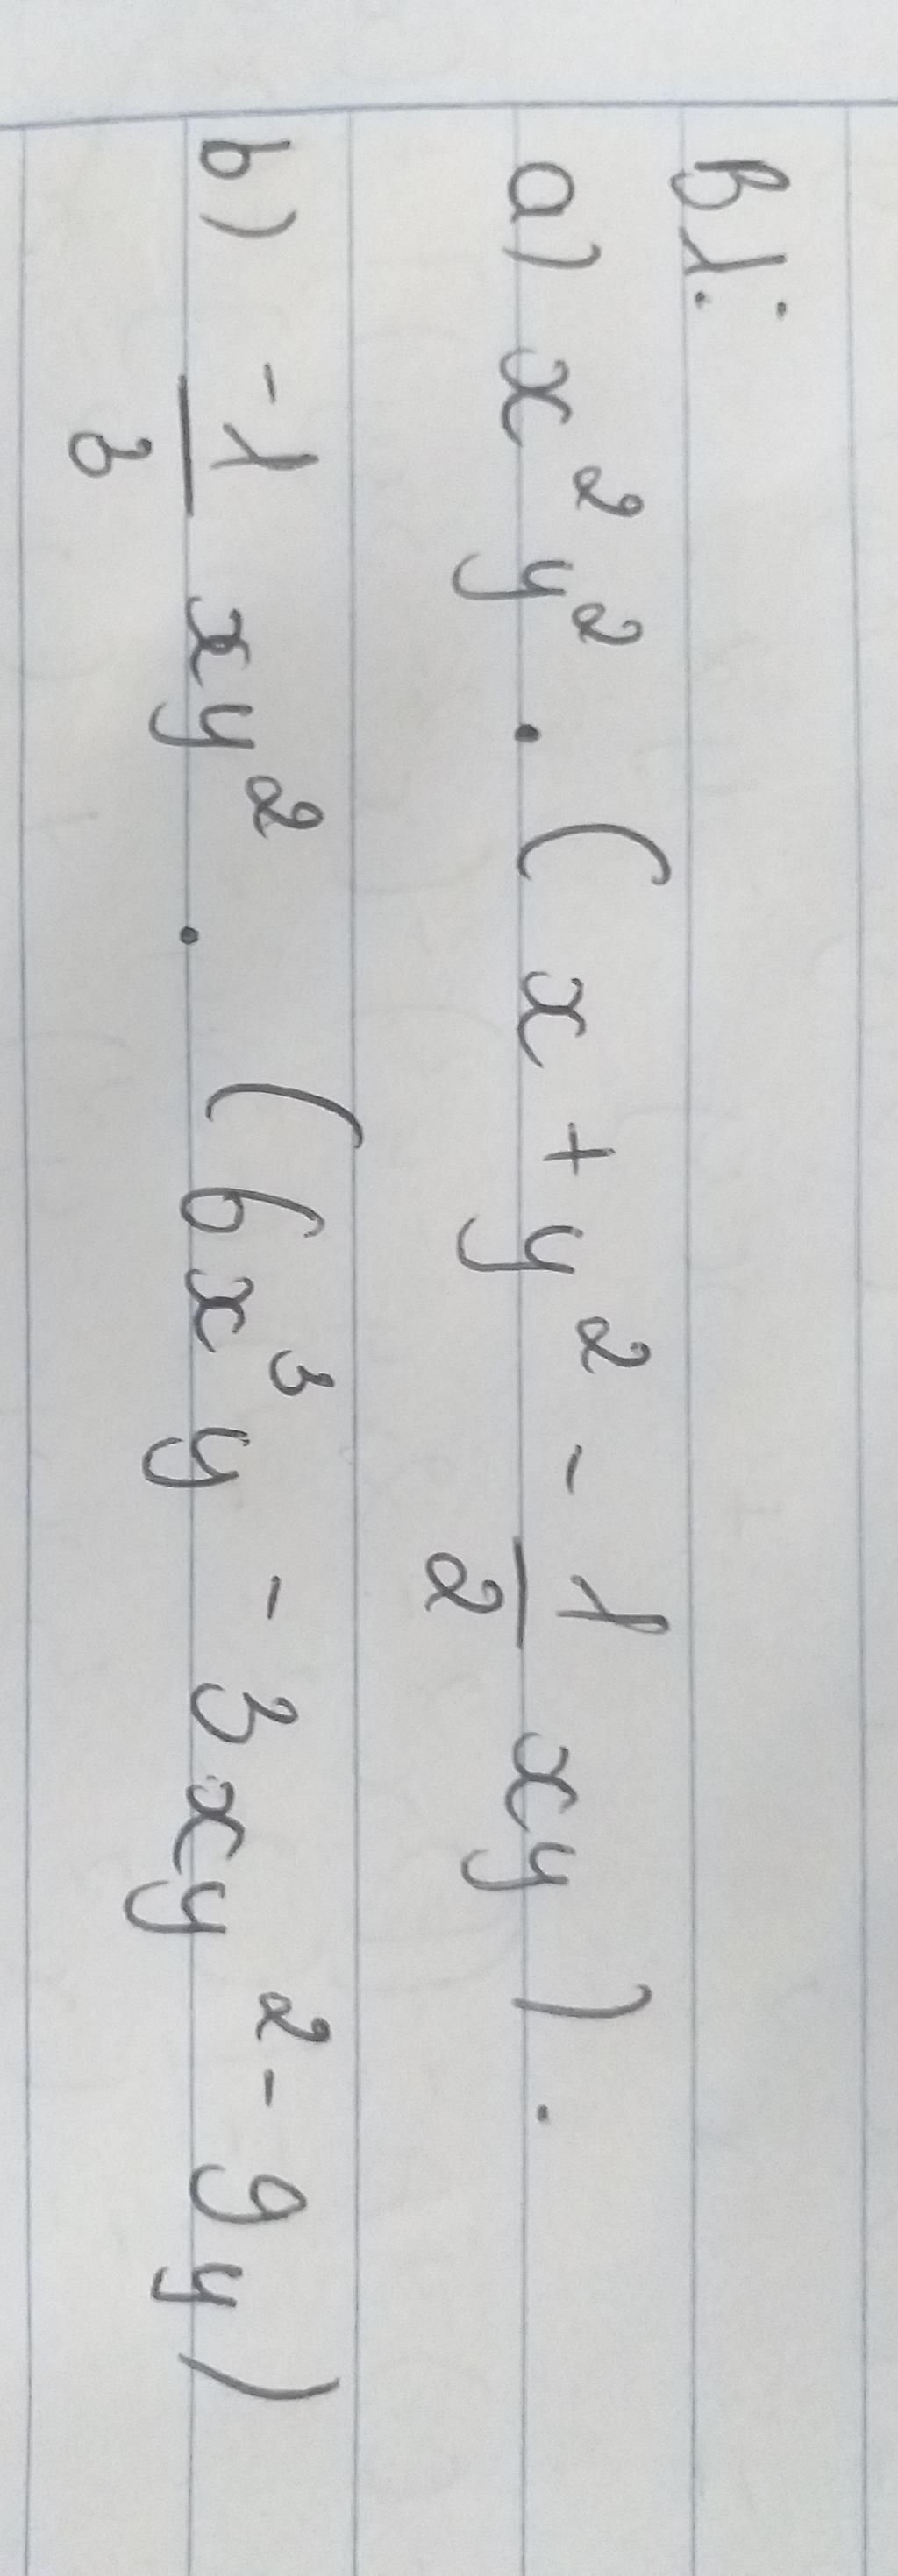 B1:
a) x² y² . ( x + y² - 1/2 xy ) .
b) -1/3 xy² . ( 6x³y - 3xy² - 9y )